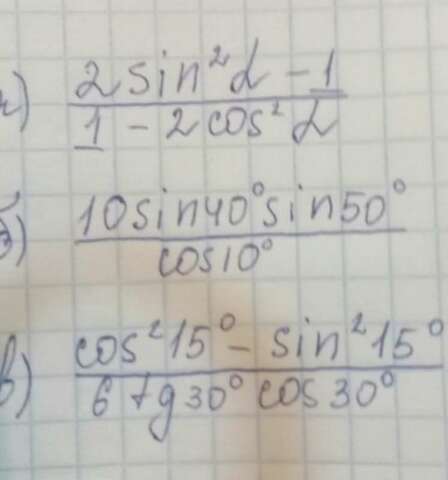 а) 2 sin²α - 1
1 - 2 cos²α
б) 10 sin 40° sin 50°
cos 10°
в) cos² 15° - sin² 15°
6 tg 30° cos 30°